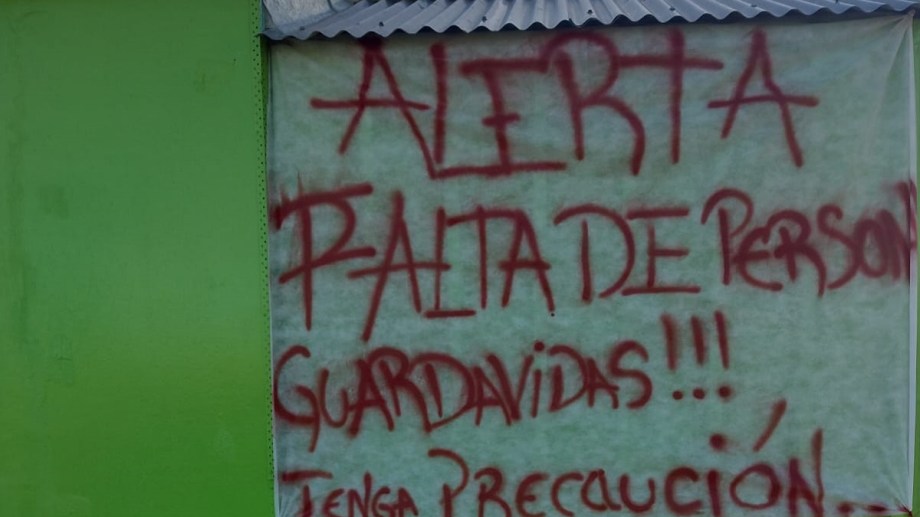 ALERTA
FALTA DE PERSON
GUARDAVIDAS!!!
TENGA PRECAUCIÓN...